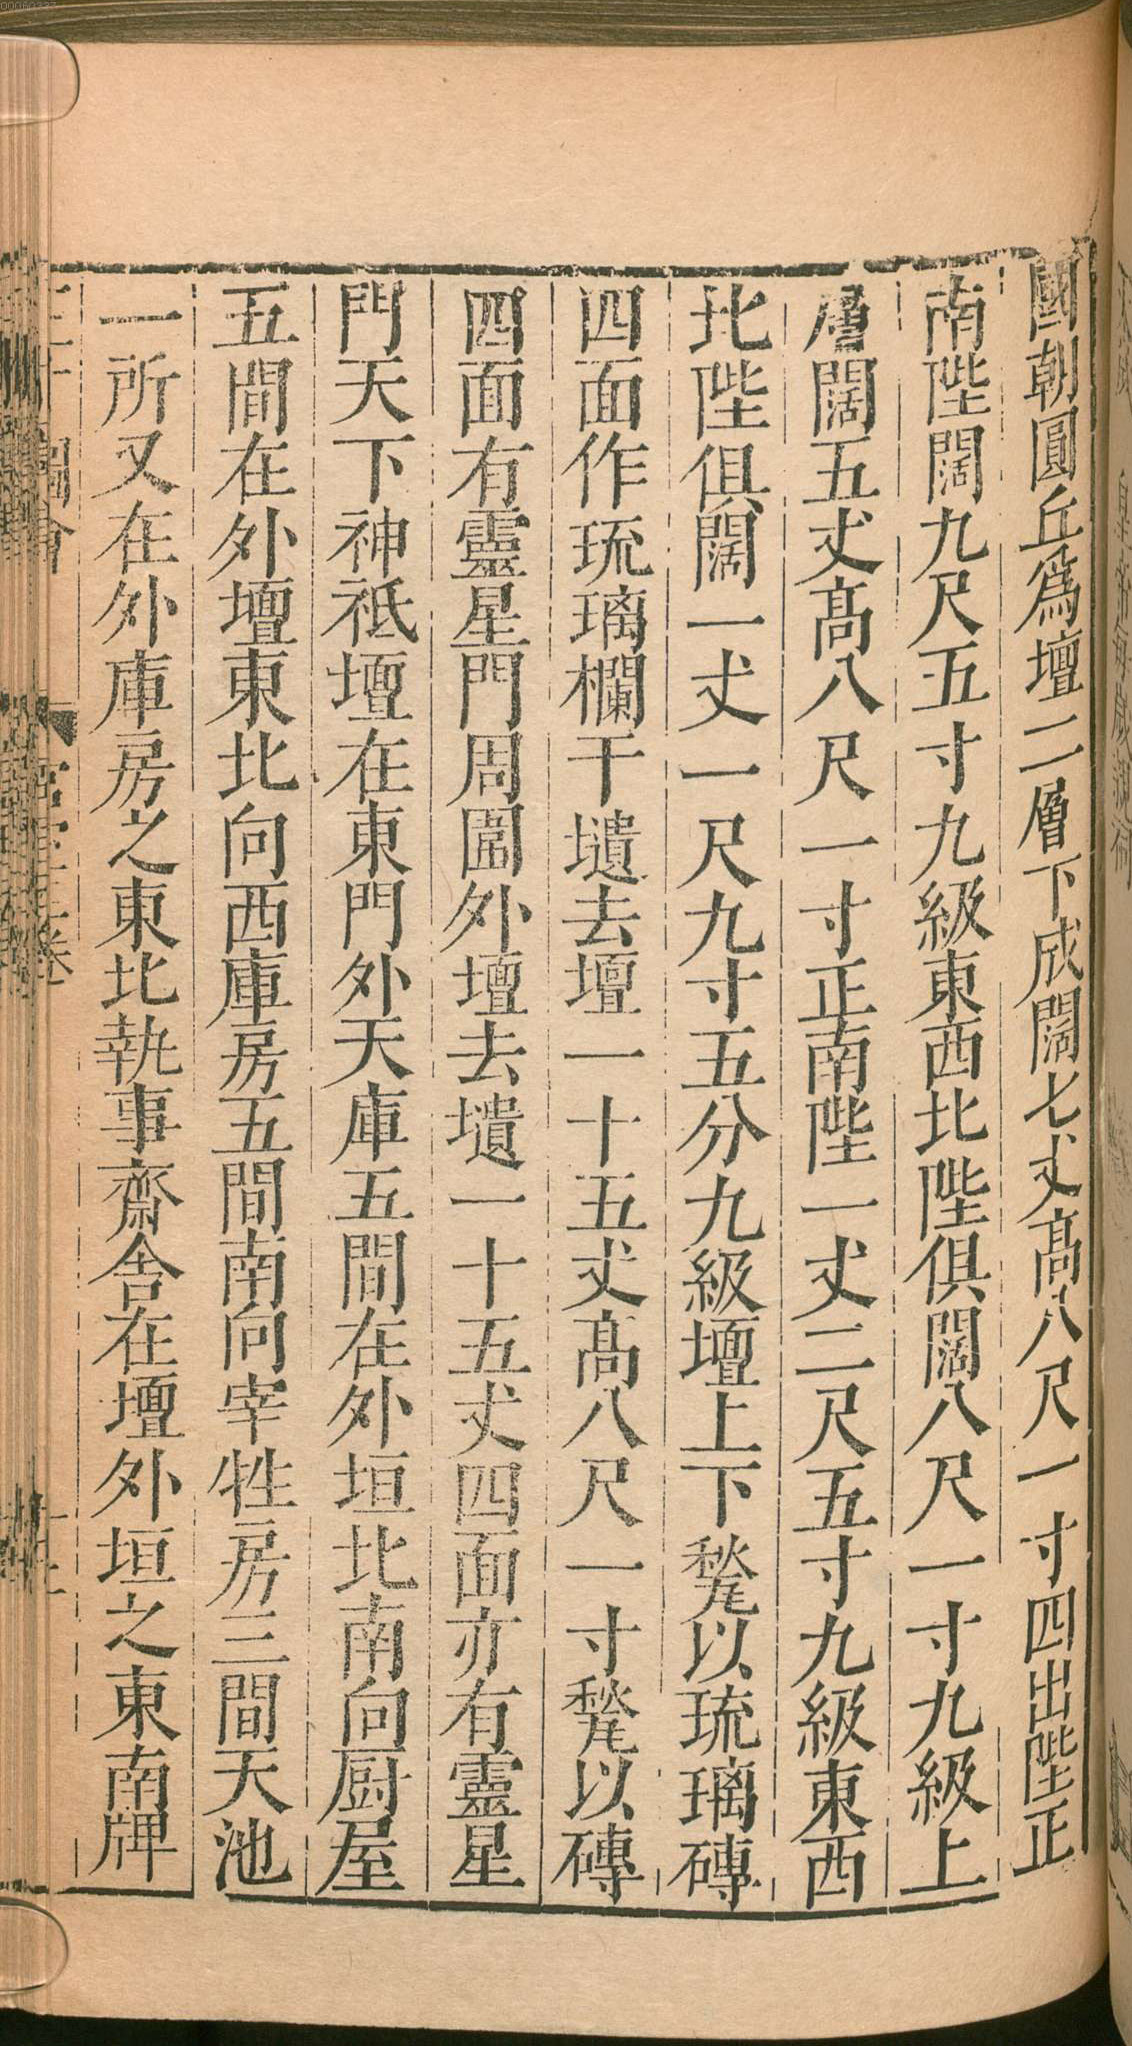 國朝圓丘爲壇二層下成闊七丈髙八尺一寸四出陛正
南陛闊九尺五寸九級東西北陛俱闊八尺一寸九級上
層闊五丈髙八尺一寸正南陛一丈二尺五寸九級東西
北陛俱闊一丈一尺九寸五分九級壇上下甃以琉璃磚
四面作琉璃欄干壝去壇一十五丈髙八尺一寸甃以磚
四面有靈星門周圍外壇去壝一十五丈四面亦有靈星
門天下神祇壇在東門外天庫五間在外垣北南向厨屋
五間在外壇東北向西庫房五間南向宰牲房三間天池
一所又在外庫房之東北執事齋舍在壇外垣之東南牌